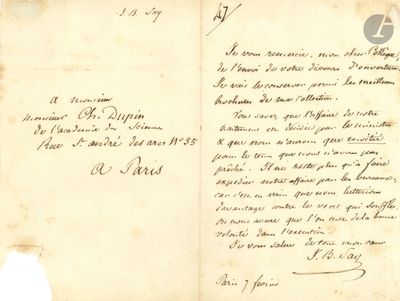 J. B. Say
A monsieur
monsieur Ch. Dupin
de l'academie des Sciences
Rue St andré des arcs N° 55
A Paris
47
Je vous remercie, mon cher Collègue,
de l'envoi de votre discours d'ouverture.
Je vais le conserver parmi les meilleures
brochures de ma collection.
Vous savez que l'affaire de notre
traitement est décidée par le ministre
& que nous n'aurons que moitié
pour le tems que nous n'avons pas
prêché. Il ne reste plus qu'à faire
expédier notre affaire par les bureaux;
car c'est en vain que nous lutterions
davantage contre le vent qui souffle.
On nous assure que l'on met de la bonne
volonté dans l'exécution.
Je vous salue de tout mon cœur
J. B. Say
Paris 7 fevrier